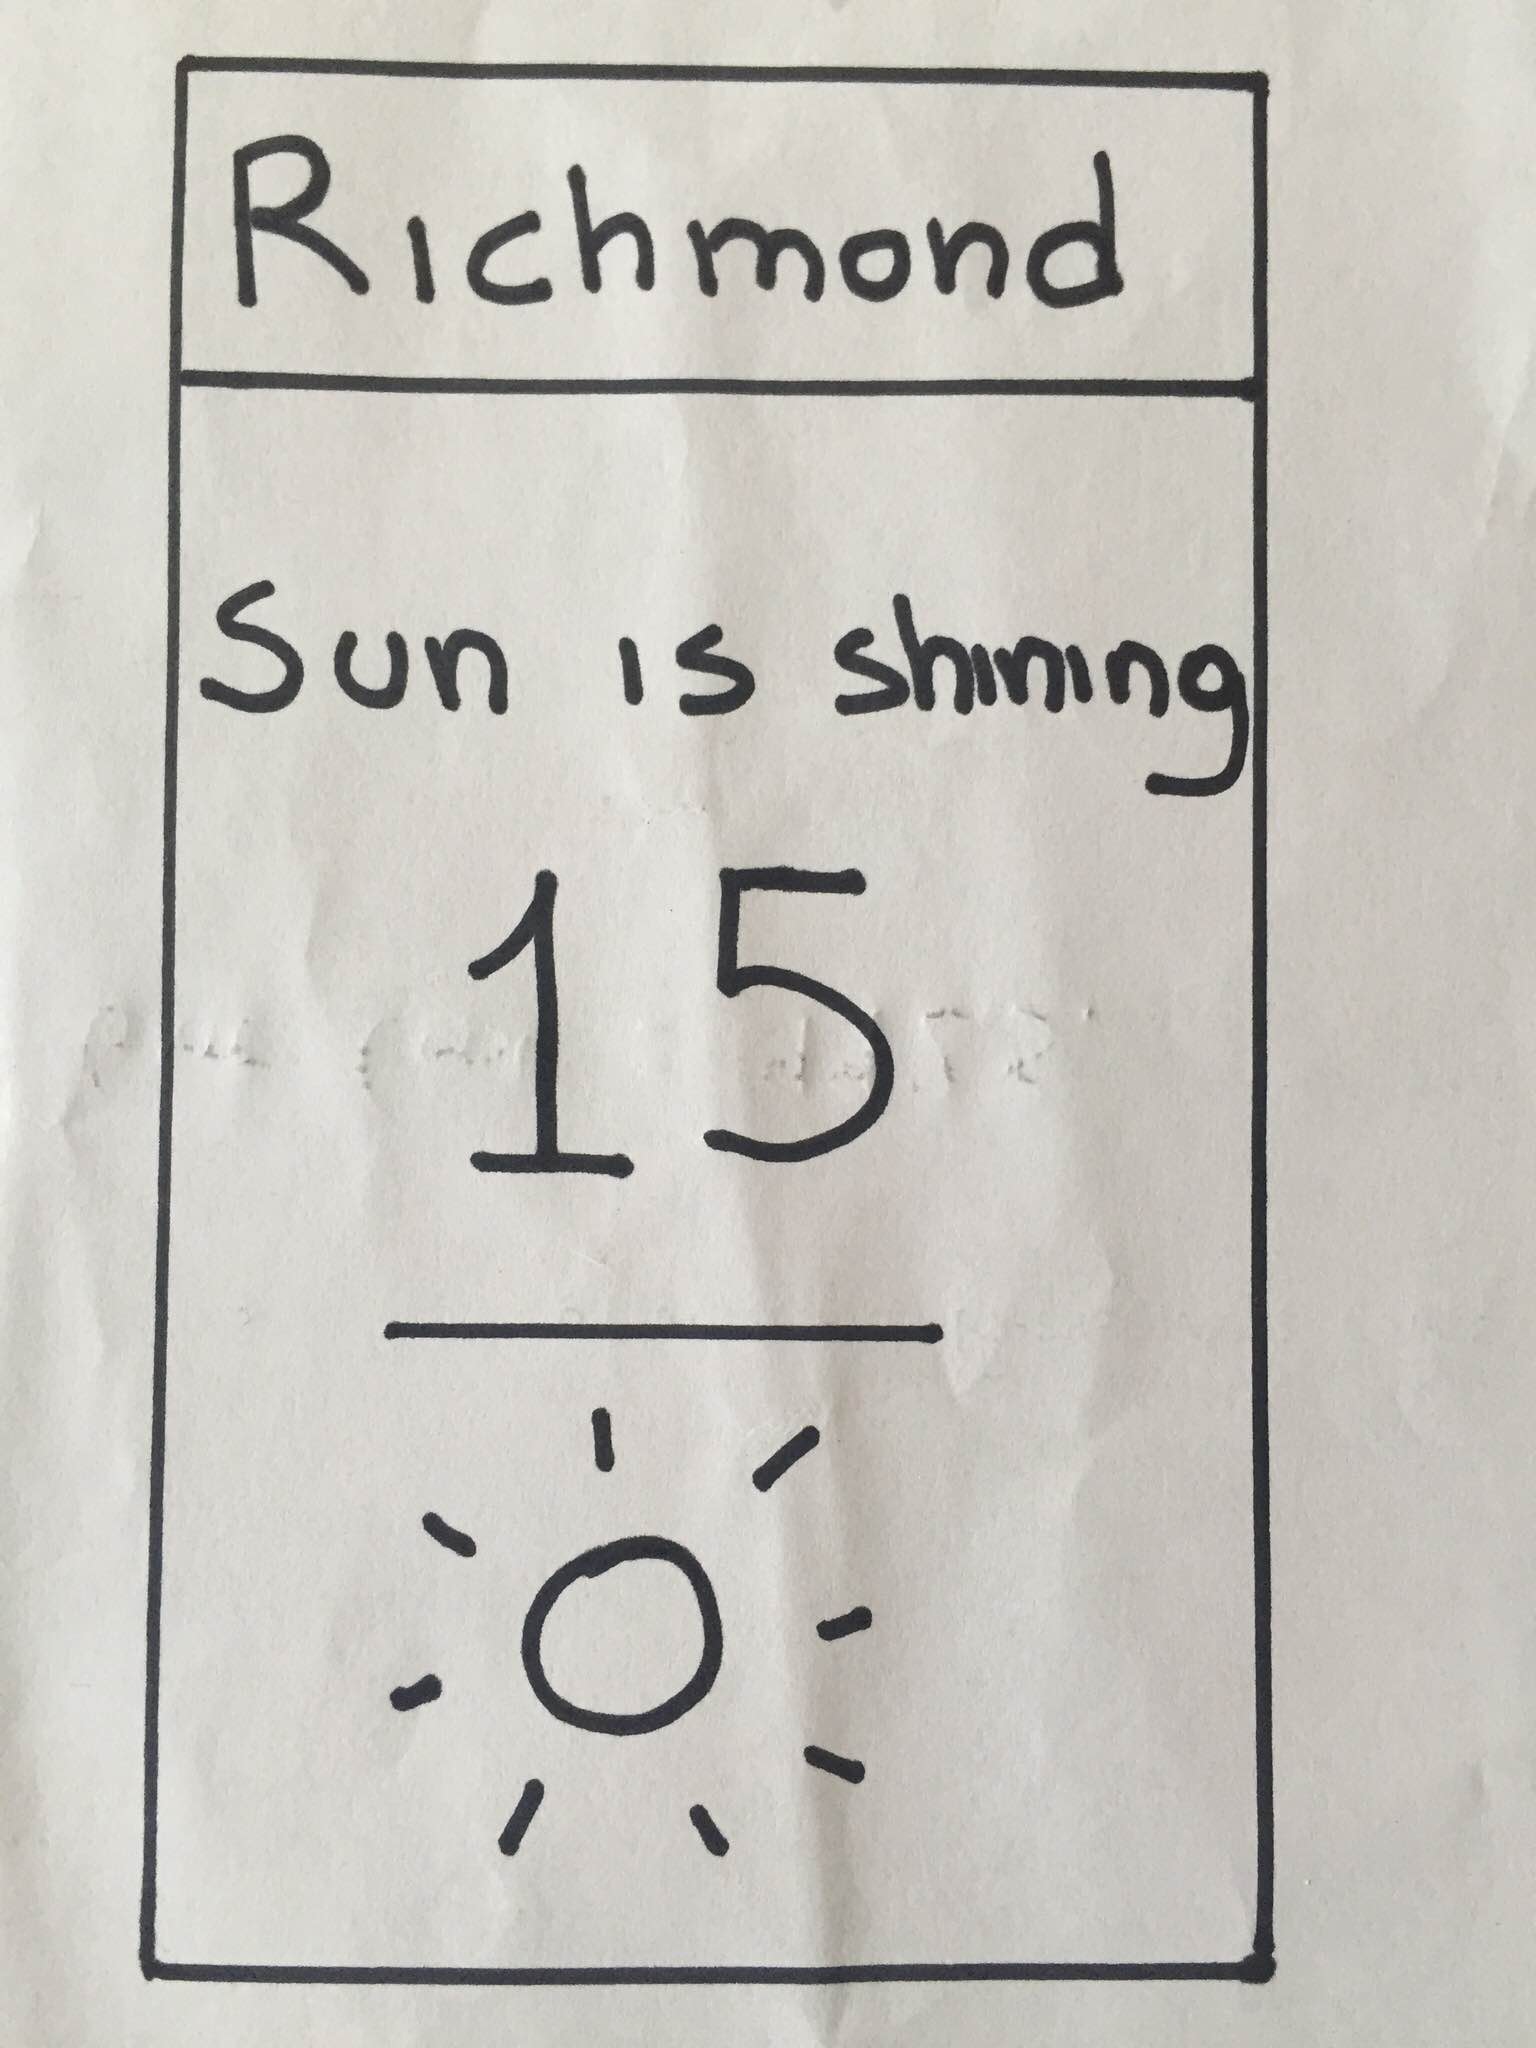 Richmond
Sun is shining
15